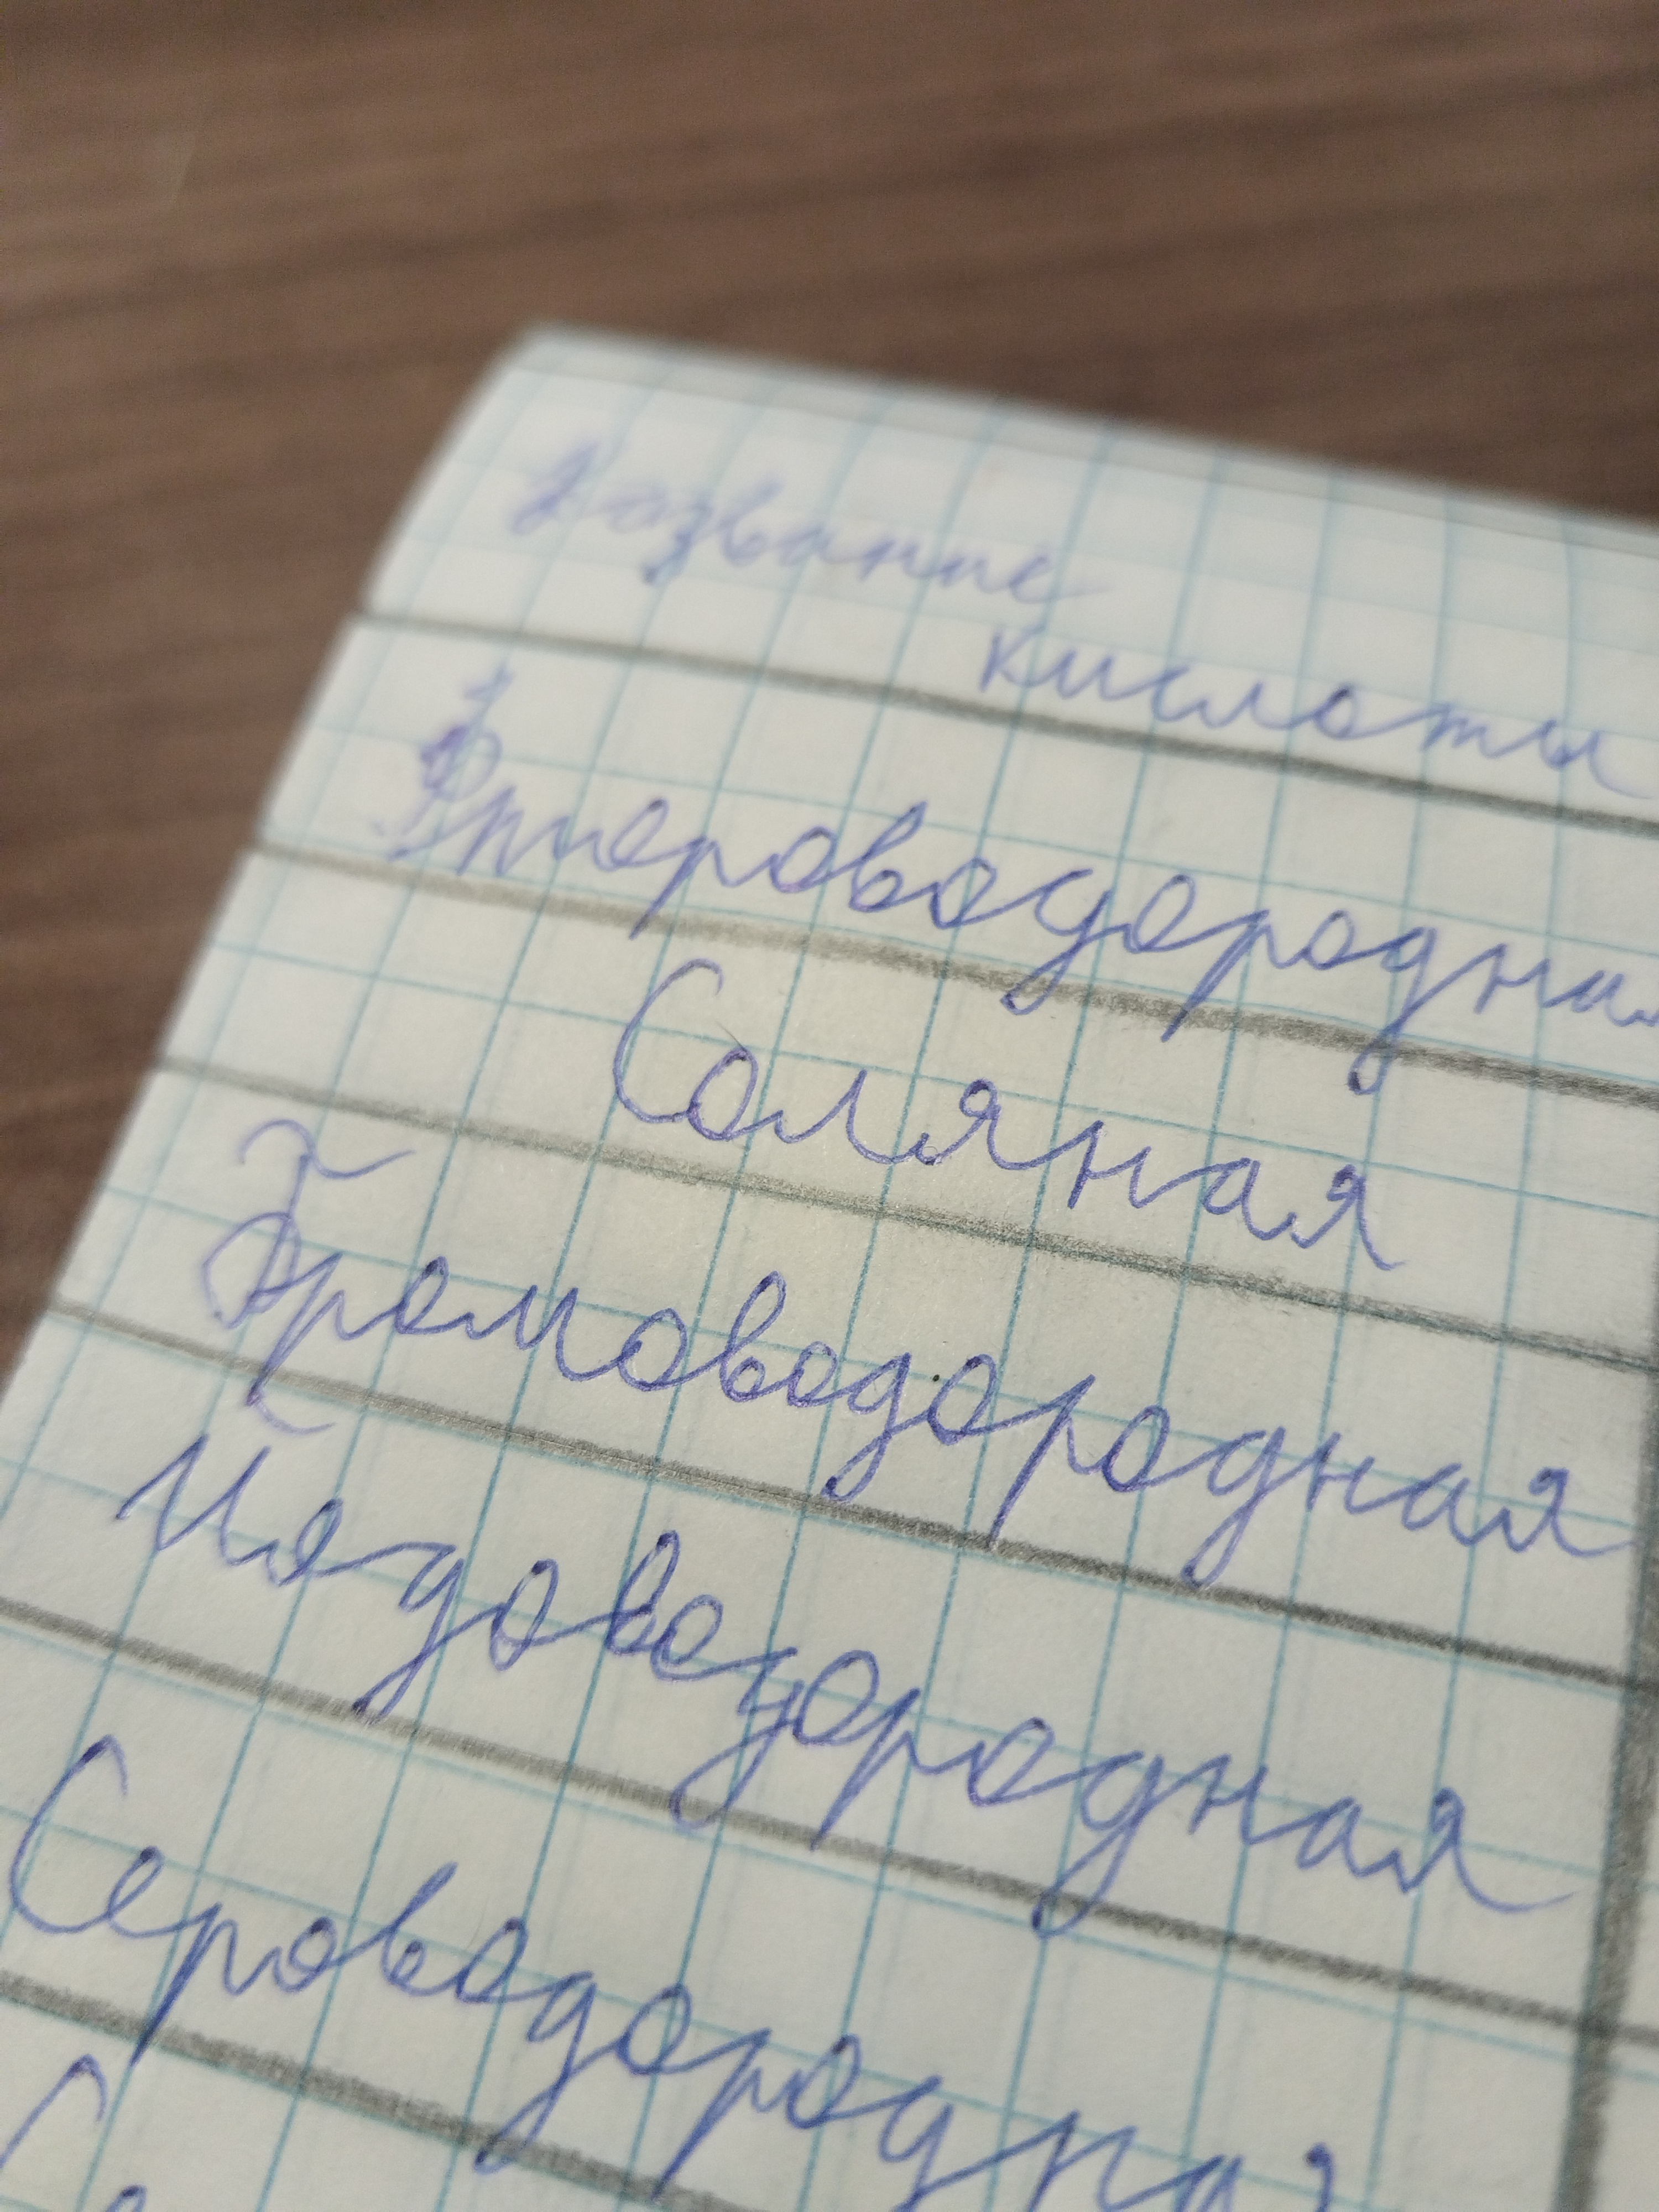 Название
кислоты
Фтороводородная
Соляная
Бромоводородная
Йодоводородная
Сероводородная